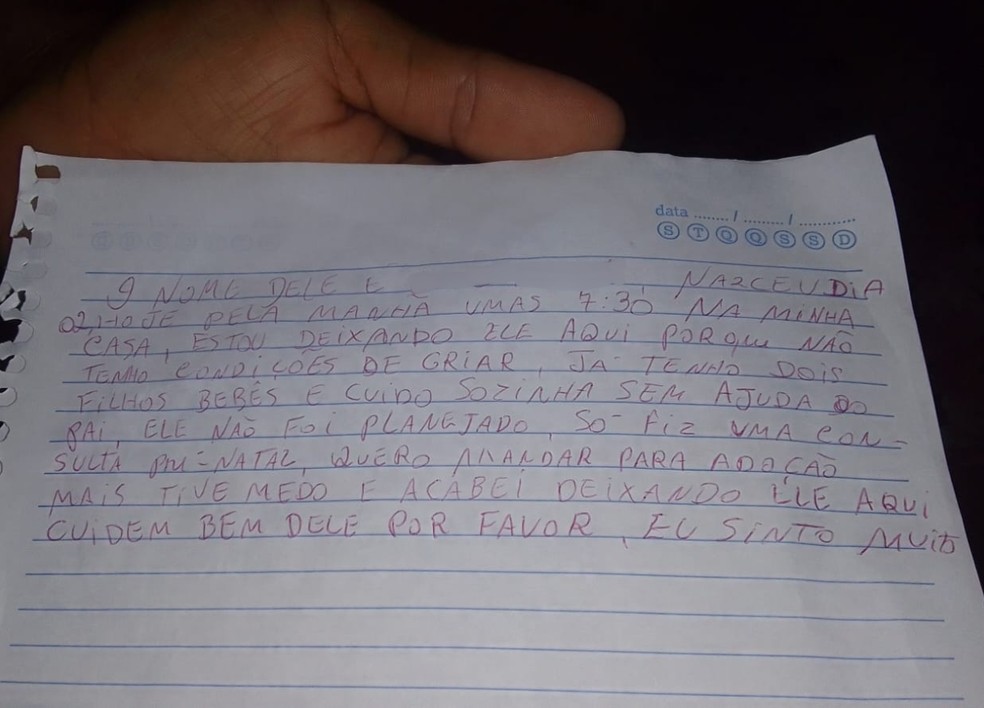 data ......../........./............
S T Q Q S S D
O NOME DELE E NASCEU DIA
02, HOJE PELA MANHÃ UMAS 7:30 NA MINHA
CASA, ESTOU DEIXANDO ELE AQUI PORQUE NÃO
TENHO CONDIÇÕES DE CRIAR, JA TENHO DOIS
FILHOS BEBÊS E CUIDO SOZINHA SEM AJUDA DO
PAI, ELE NÃO FOI PLANEJADO, SO FIZ UMA CON-
SULTA PRE-NATAL, QUERO MANDAR PARA ADOÇÃO
MAIS TIVE MEDO E ACABEI DEIXANDO ELE AQUI
CUIDEM BEM DELE POR FAVOR, EU SINTO MUITO